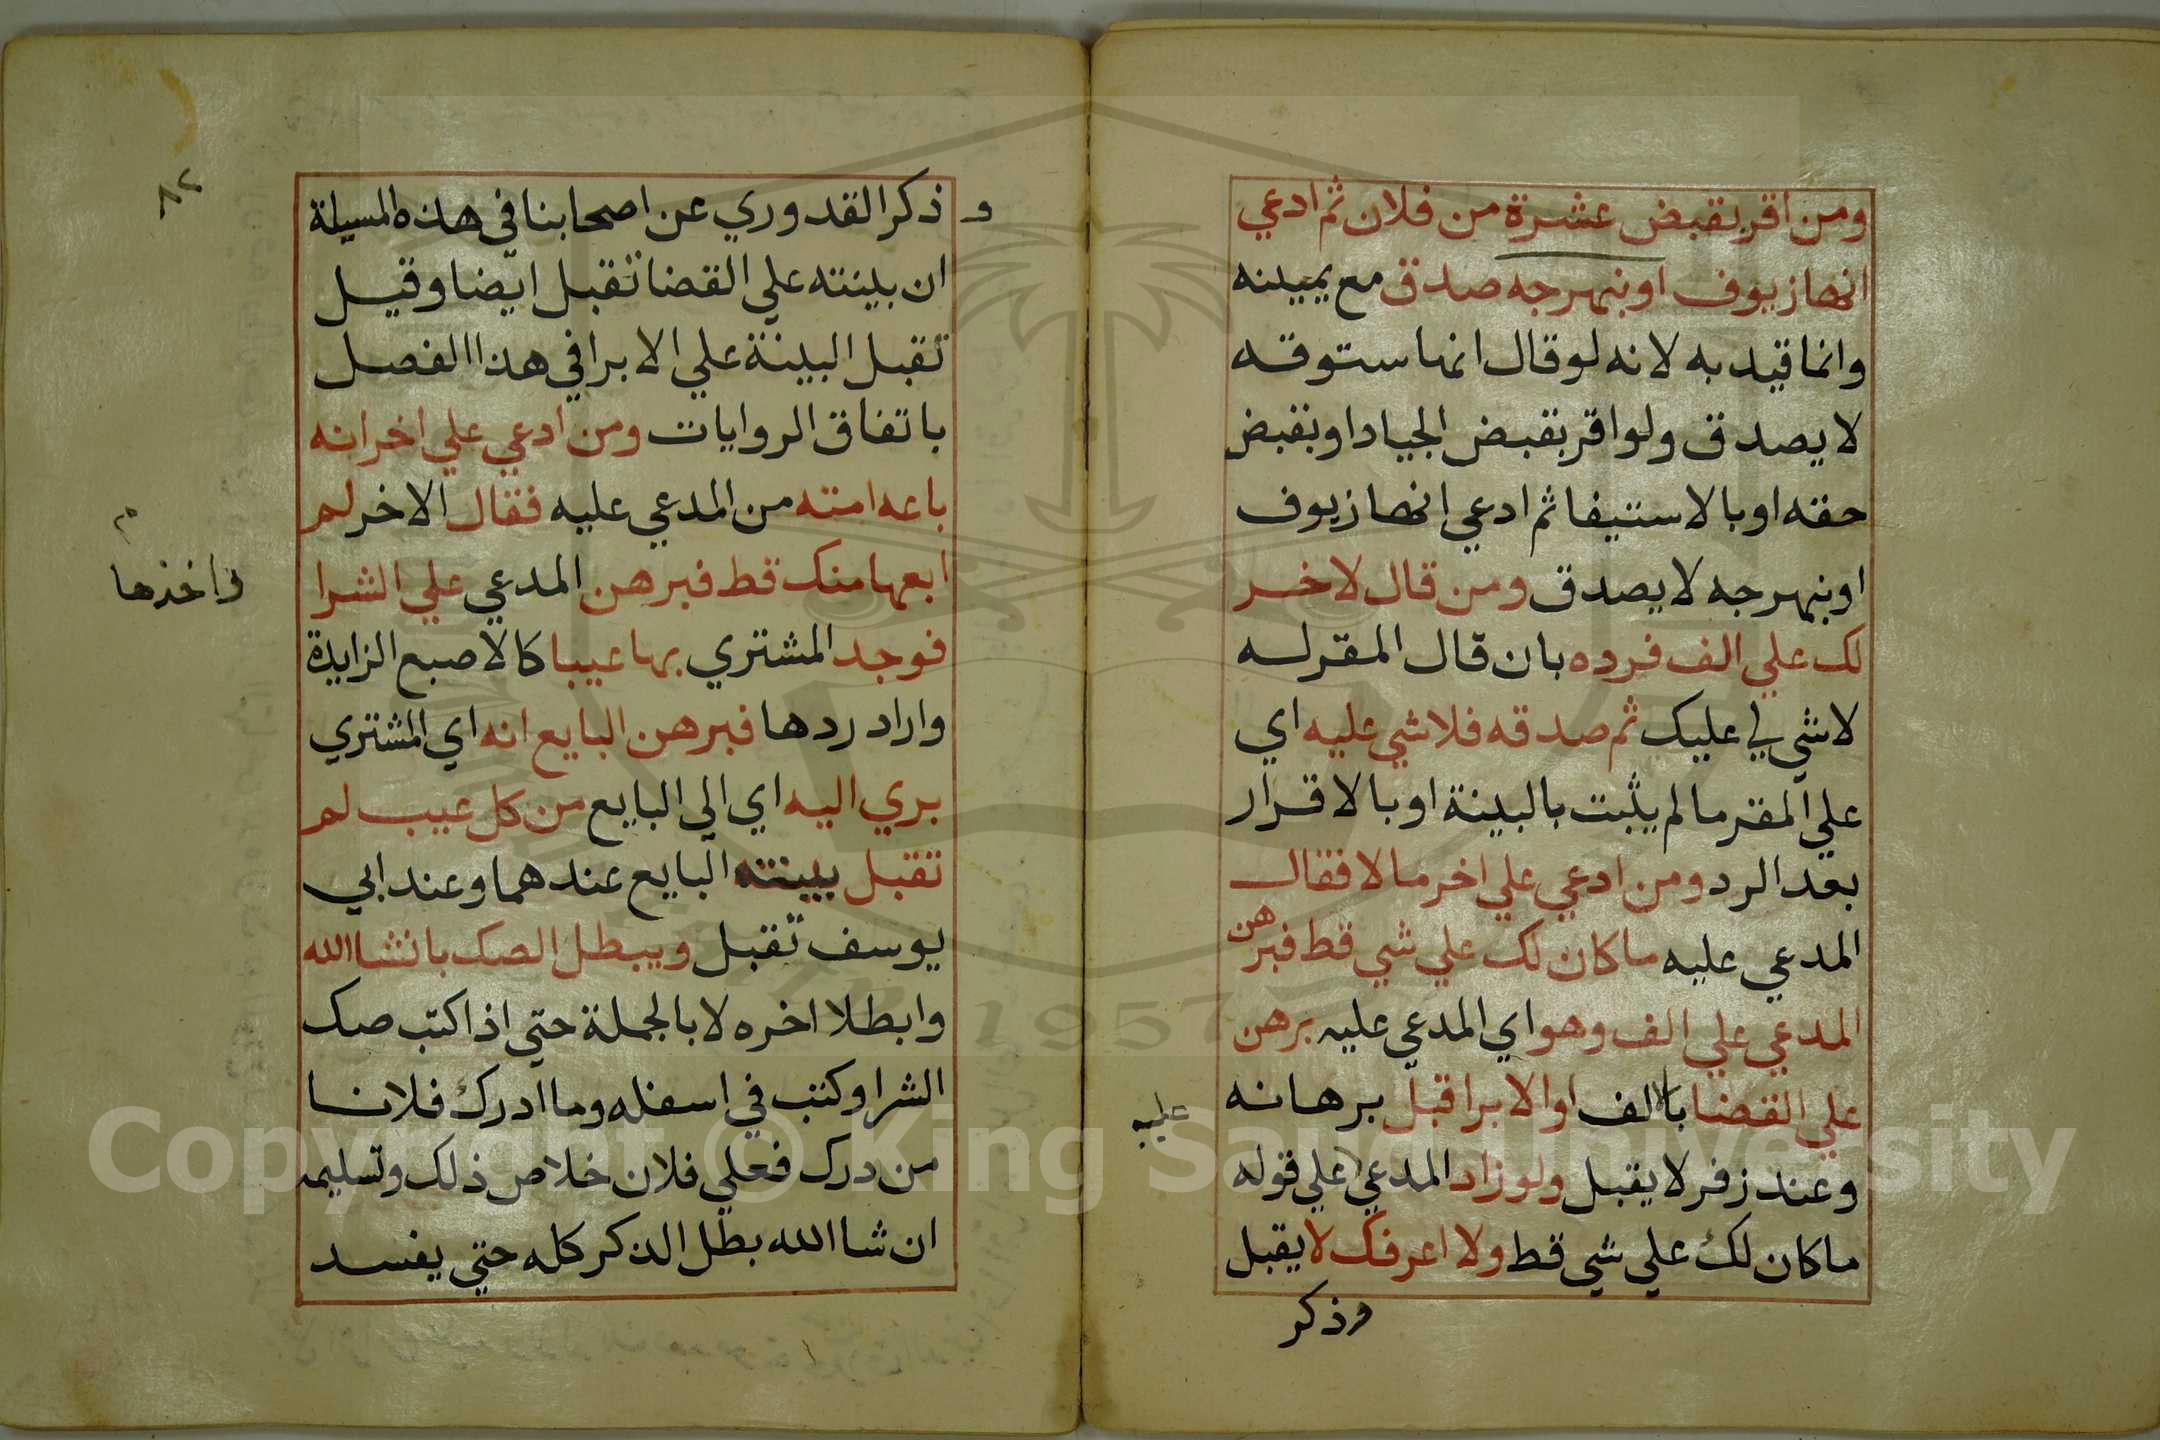 ومن اقر بقبض عشرة من فلان ثم ادعي
انها زيوف او بنهرجه صدق مع يمينه
وانما قيد به لانه لو قال انها ستوقه
لا يصدق ولو اقر بقبض الجياد او بقبض
حقه او بالاستيفا ثم ادعي انها زيوف
او بنهرجه لا يصدق ومن قال لاخر
لك علي الف فرده بان قال المقر له
لا شي لي عليك ثم صدقه فلا شي عليه اي
علي المقر ما لم يثبت بالبينة او بالاقرار
بعد الرد ومن ادعي علي اخر مالا فقال
المدعي عليه ما كان لك علي شي قط فبرهن
المدعي علي الف وهو اي المدعي عليه برهن
علي القضا بالالف او الابرا قبل برهانه
عليه
وعند زفر لا يقبل ولو زاد المدعي علي قوله
ما كان لك علي شي قط ولا اعرفك لا يقبل
وذكر
٨٢
و ذكر القدوري عن اصحابنا في هذه المسيلة
ان بينته علي القضا تقبل ايضا وقيل
تقبل البينة علي الابرا في هذا الفصل
باتفاق الروايات ومن ادعي علي اخر انه
باعه امته من المدعي عليه فقال الاخر لم
ابعها منك قط فبرهن المدعي علي الشرا
واخذها
فوجد المشتري بها عيبا كالاصبع الزايدة
واراد ردها فبرهن البايع انه اي المشتري
بري اليه اي الي البايع من كل عيب لم
تقبل بينته البايع عندهما وعند ابي
يوسف تقبل ويبطل الصك بانشا الله
وابطلا اخره لا بالجملة حتي اذا كتب صك
الشرا وكتب في اسفله وما ادرك فلانا
من درك فعلي فلان خلاص ذلك وتسليمه
ان شا الله بطل الذكر كله حتي يفسد
Copyright © King Saud University
1957